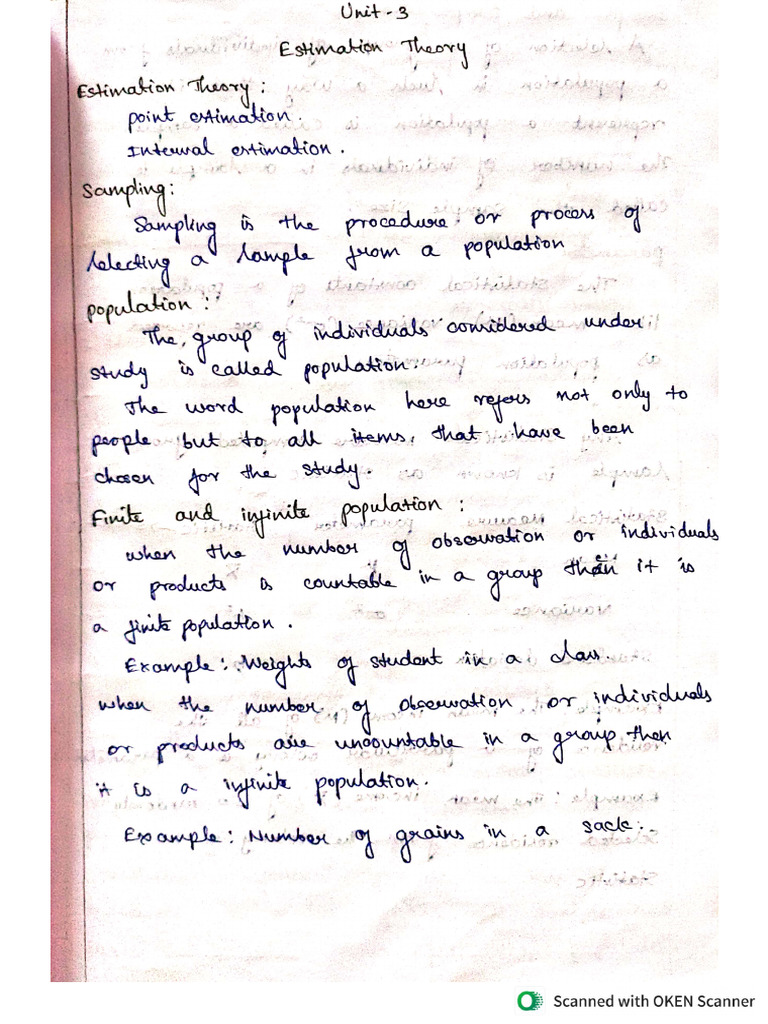 Unit - 3
Estimation Theory
Estimation Theory :
point estimation.
Interval estimation.
Sampling:
Sampling is the procedure or process of
selecting a sample from a population
population :
The, group of individuals considered under
study is called population.
The word population here refers not only to
people but to all items, that have been
chosen for the study.
Finite and infinite population :
when the number of observation or individuals
or products is countable in a group then it is
a finite population.
Example: Weights of student in a class.
when the number of observation or individuals
or products are uncountable in a group then
it is a infinite population.
Example: Number of grains in a sack.
Scanned with OKEN Scanner